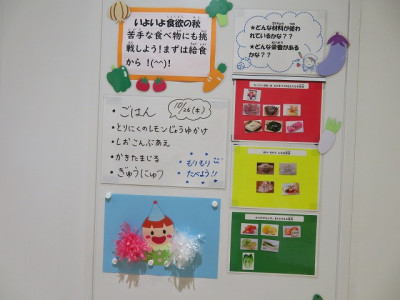 いよいよ食欲の秋
苦手な食べ物にも挑
戦しよう！まずは給食
から！(^^)！
★どんな材料が使わ
れているかな？？
★どんな栄養がある
かな？？
10/26(木)
・ごはん
・とりにくのレモンじょうゆかけ
・しおこんぶあえ
・かきたまじる
・ぎゅうにゅう
もりもり
たべよう!!